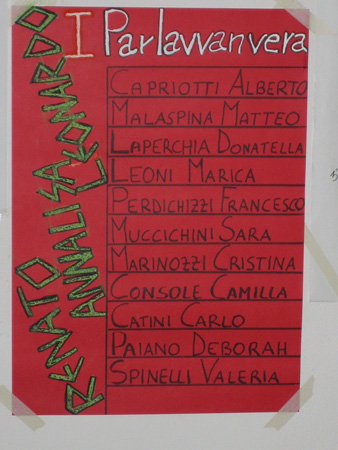 I Parlavvanvera
CAPRIOTTI ALBERTO
MALASPINA MATTEO
LAPERCHIA DONATELLA
LEONI MARICA
PERDICHIZZI FRANCESCO
MUCCICHINI SARA
MARINOZZI CRISTINA
CONSOLE CAMILLA
CATINI CARLO
PAIANO DEBORAH
SPINELLI VALERIA
RENATO
ANNALISA
LEONARDO